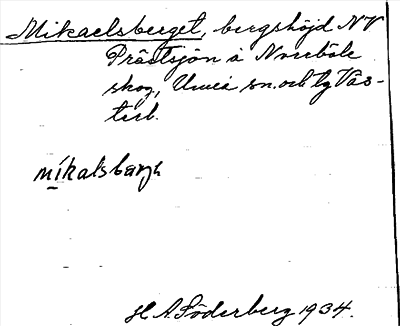 Mikaelsberget, bergshöjd NV
Prästsjön å Norrböle
skog, Umeå sn. och lg Väs-
terb.
míkalsbærjə
H A Söderberg 1934.